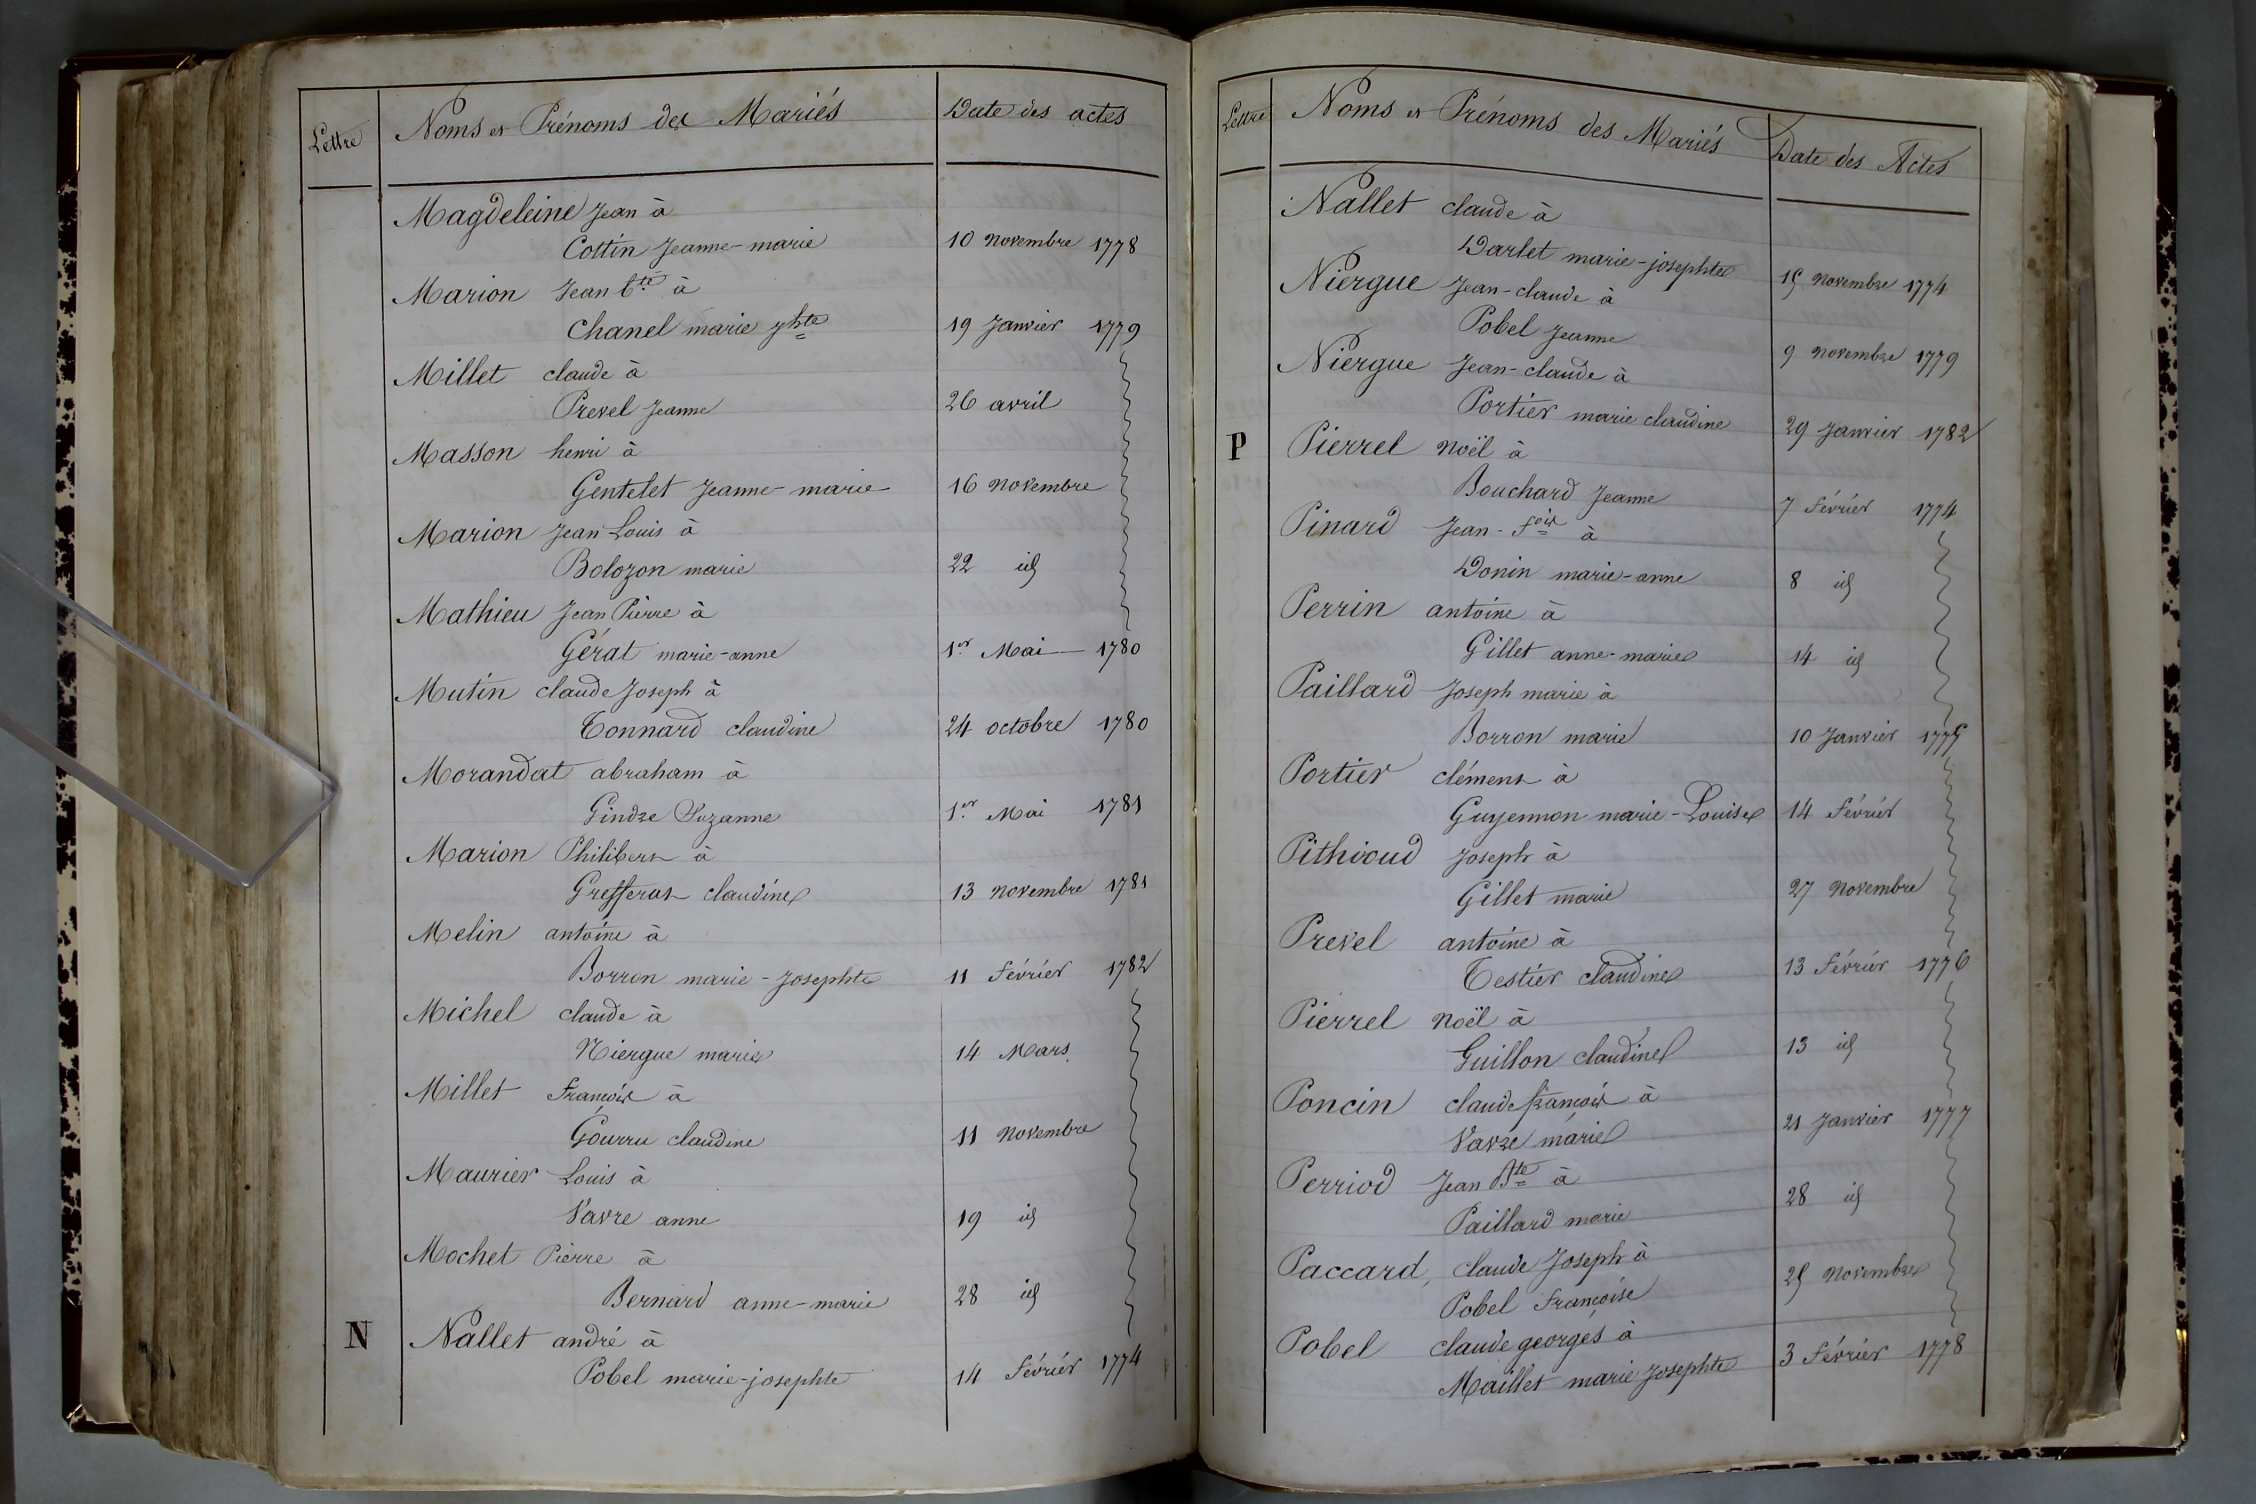 Lettre Noms et Prénoms des Mariés Date des actes
Magdeleine Jean à
Cottin Jeanne-marie 10 novembre 1778
Marion Jean bte à
Chanel marie jhte 19 Janvier 1779
Millet claude à
Prevel Jeanne 26 avril
Masson henri à
Gentelet Jeanne-marie 16 novembre
Marion Jean Louis à
Bolozon marie 22 id
Mathieu Jean Pierre à
Gérat marie-anne 1er Mai 1780
Mutin claude Joseph à
Tonnard claudine 24 octobre 1780
Morandat abraham à
Gindre Suzanne 1er Mai 1781
Marion Philibert à
Grefferat claudine 13 novembre 1781
Melin antoine à
Borron marie-Josephte 11 Février 1782
Michel claude à
Niergue marie 14 Mars
Millet François à
Gourru claudine 11 novembre
Maurier Louis à
Vavre anne 19 id
Mochet Pierre à
Bernard anne-marie 28 id
N Nallet andré à
Pobel marie-josephte 14 Février 1774
Lettre Noms et Prénoms des Mariés Date des Actes
Nallet claude à
Darlet marie-josephte 15 novembre 1774
Niergue Jean-claude à
Pobel Jeanne 9 novembre 1779
Niergue Jean-claude à
Portier marie claudine 29 Janvier 1782
P Pierrel noël à
Bouchard Jeanne 7 Février 1774
Pinard Jean-fois à
Donin marie-anne 8 id
Perrin antoine à
Gillet anne-marie 14 id
Paillard Joseph marie à
Borron marie 10 Janvier 1775
Portier clément à
Guyennon marie-Louise 14 Février
Pithioud Joseph à
Gillet marie 27 novembre
Prevel antoine à
Testier claudine 13 Février 1776
Pierrel noël à
Guillon claudine 13 id
Poncin claude françois à
Vavre marie 21 Janvier 1777
Perriod Jean Bte à
Paillard marie 28 id
Paccard, claude Joseph à
Pobel Françoise 25 novembre
Pobel claude georges à
Maillet marie Josephte 3 Février 1778